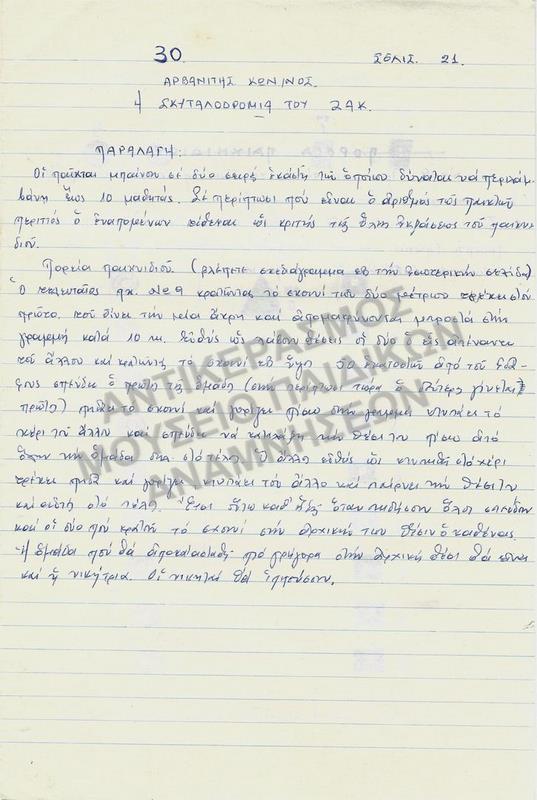 30 ΣΕΛΙΣ. 21.
ΑΡΒΑΝΙΤΗΣ ΚΩΝ/ΝΟΣ.
Η ΣΚΥΤΑΛΟΔΡΟΜΙΑ ΤΟΥ ΣΑΚ.
ΠΑΡΑΛΑΓΗ:
Οἱ παῖκται μπαίνουν σὲ δύο σειρὲς ἑκάστη τῶν ὁποίων δύναται νὰ περιλαμ-
βάνῃ ἕως 10 μαθητάς. Σὲ περίπτωσι ποὺ εἶναι ὁ ἀριθμὸς τῶν παικτῶν
περιττὸς ὁ ἐναπομένων τίθεται ὡς κριτὴς τῆς ὅλης ἐκβάσεως τοῦ παιχνι-
διοῦ.
Πορεία παιχνιδιοῦ. (βλέπετε σχεδιάγραμμα εἰς τὴν ἐσωτερικὴν σελίδα)
Ὁ τελευταῖος π.χ. Νο 9 κρατῶντας τὸ σχοινὶ τῶν δύο μέτρων τρέχει στὸν
πρῶτο. τοῦ δίνει τὴν μία ἄκρη καὶ ἀπομακρύνονται μπροστὰ στὴν
γραμμὴ κατὰ 10 μ. Εὐθὺς ὡς λάβουν θέσεις οἱ δύο ὁ εἷς ἀπέναντι
τοῦ ἄλλου καὶ τὸ σχοινὶ εἰς ὕψος 50 ἑκατοστῶν ἀπὸ τοῦ ἐδά-
φους σπεύδει ὁ πρῶτος τῆς ὁμάδος (στὴν περίπτωσι τώρα ὁ δεύτερος γίνεται
πρῶτος) πηδᾶ τὸ σχοινὶ καὶ γυρίζει πίσω στὴν γραμμὴ κτυπάει τὸ
χέρι τοῦ ἄλλου καὶ σπεύδει νὰ καταλάβῃ τὴν θέσι του πίσω ἀπὸ
ὅλην τὴν ὁμάδα στὸ τέλος. Ὁ ἄλλος εὐθὺς ὡς κτυπηθῇ στὸ χέρι
τρέχει πηδᾶ καὶ γυρίζει κτυπάει τοῦ ἄλλο καὶ παίρνει τὴν θέσι του
καὶ αὐτὸς στὸ τέλος. Ἔτσι οὕτω καθ' ἑξῆς ὅταν πηδήσουν ὅλοι σπεύδουν
καὶ οἱ δύο ποὺ κρατοῦν τὸ σχοινὶ στὴν ἀρχική των θέσιν ὁ καθένας.
Ἡ ὁμάδα ποὺ θὰ ἀποκατασταθῇ πιὸ γρήγορα στὴν ἀρχικὴ θέσι θὰ εἶναι
καὶ ἡ νικήτρια. Οἱ νικηταὶ θὰ
ΑΝΤΙΚΕΡΑΣΜΟΣ
ΜΟΥΣΕΙΟ ΠΑΙΔΙΚΩΝ
ΑΝΑΜΝΗΣΕΩΝ